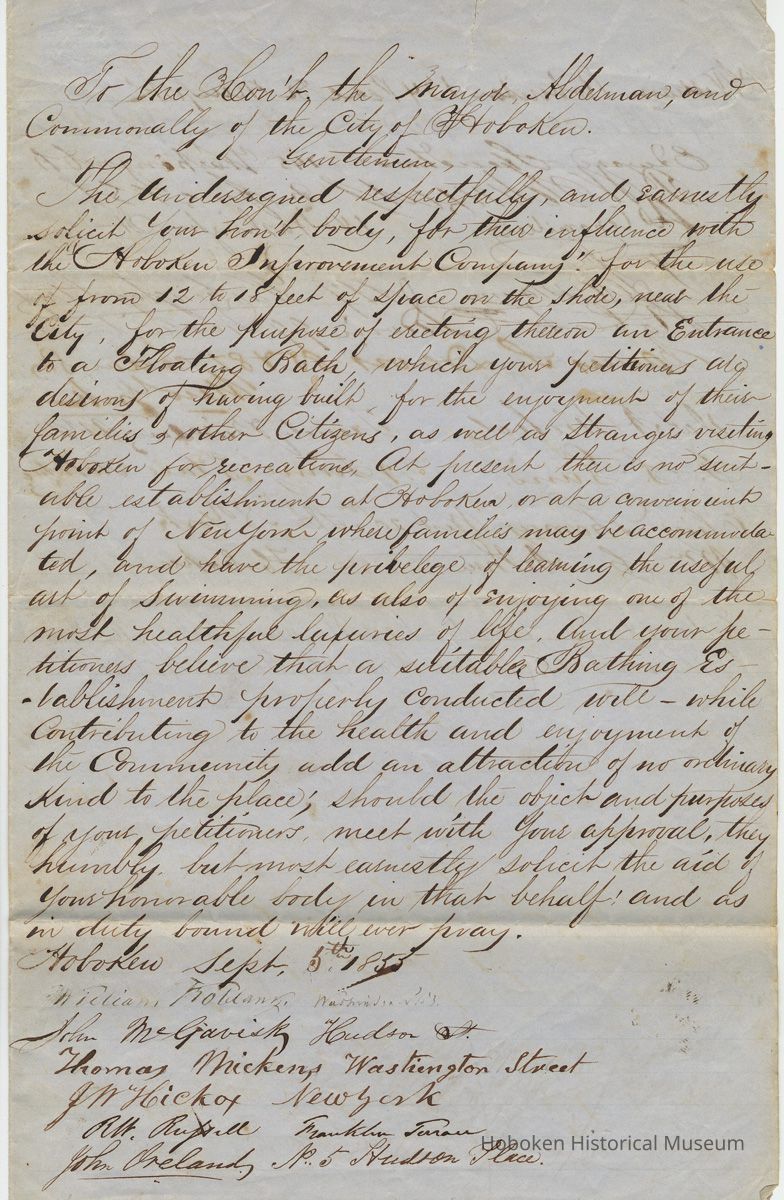 To the Hon'b. the Mayor, Alderman, and
Commonally of the City of Hoboken.
Gentlemen,
The Undersigned respectfully, and earnestly
solicit Your hon'b. body, for their influence with
the "Hoboken Improvement Company". for the use
of from 12 to 18 feet of space on the shore, near the
City, for the purpose of erecting thereon an Entrance
to a Floating Bath, which your petitioners are
desirous of having built for the enjoyment of their
families & other Citizens, as well as strangers visiting
Hoboken for recreations. At present there is no suit-
able establishment at Hoboken, or at a convenient
point of New York where families may be accommoda-
ted, and have the privelege of learning the useful
art of Swimming, as also of Enjoying one of the
most healthful luxuries of life. And your pe-
titioners believe that a suitable Bathing Es-
-tablishment properly conducted will - while
Contributing to the health and enjoyment of
the Community add an attraction of no ordinary
Kind to the place; should the object and purposes
of your petitioners, meet with Your approval, they
humbly, but most earnestly solicit the aid of
Your honorable body in that behalf! and as
in duty bound will ever pray.
Hoboken Sept. 5th 1855
William
John McGavisk Hudson St.
Thomas Mickens Washington Street
J W Hickox New York
R.W. Russell Franklin Terrace
John Oreland, No. 5 Hudson Place.
Hoboken Historical Museum